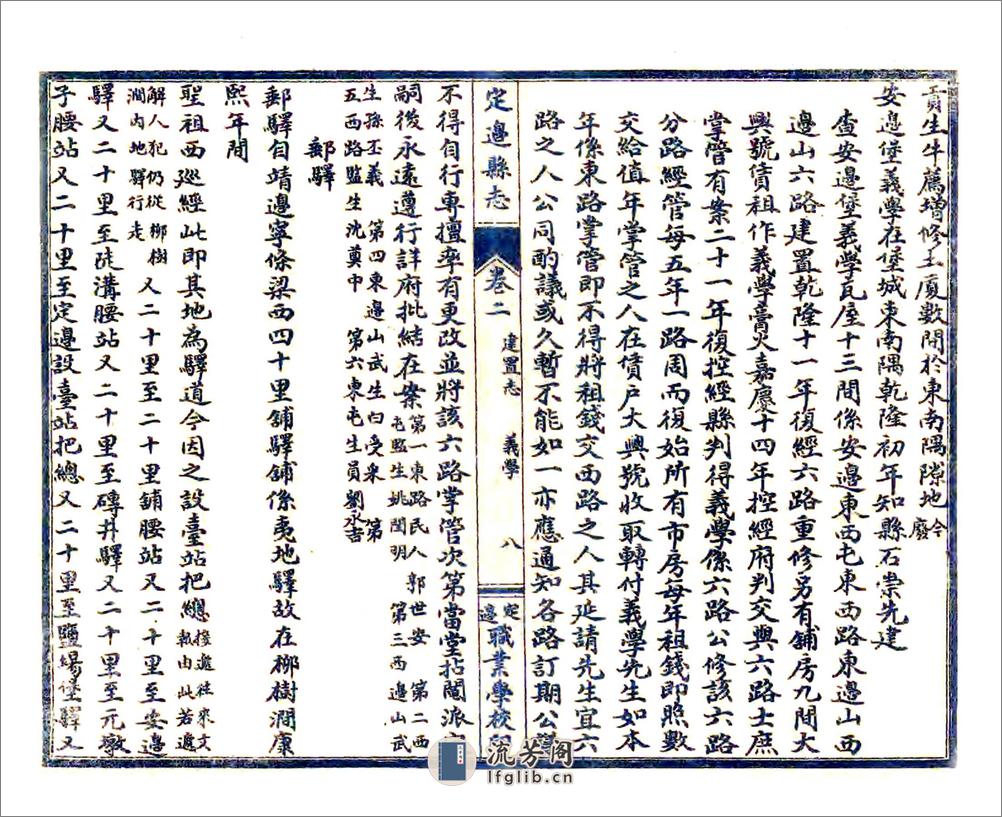 貢生牛薦增修土廈數間於東南隅隙地今廢
安邊堡義學在堡城東南隅乾隆初年知縣石崇先建
查安邊堡義學瓦屋十三間係安邊東西屯東西路東邊山西
邊山六路建置乾隆十一年復經六路重修另有舖房九間大
興號賃租作義學膏火嘉慶十四年控經府判交與六路士庶
掌管有案二十一年復控經縣判得義學係六路公修該六路
分路經管每五年一路周而復始所有市房每年租錢即照數
交給值年掌管之人在賃户大興號收取轉付義學先生如本
年係東路掌管即不得將租錢交西路之人其延請先生宜六
路之人公同酌議或久暫不能如一亦應通知各路訂期公
定邊縣志
卷二
建置志
義學
八
定邊職業學校印
不得自行專擅率有更改並將該六路掌管次第當堂拈鬮派定
嗣後永遠遵行詳府批結在案第一東路民人郭世安 第二西
屯監生姚閏明 第三西邊山武
生孫丕義 第四東邊山武生白受采 第
五西路監生沈奠中 第六東屯生員劉永吉
郵驛
郵驛自靖邊寧條梁西四十里舖驛舖係夷地驛故在柳樹澗康
熙年間
聖祖西巡經此即其地為驛道今因之設臺站把總接遞往來文
報由此若遞
解人犯仍從柳樹
澗内地驛行走又二十里至二十里舖腰站又二十里至安邊
驛又二十里至陡溝腰站又二十里至磚井驛又二十里至元墩
子腰站又二十里至定邊設臺站把總又二十里至鹽場堡驛又
流芳阁
lfglib.cn